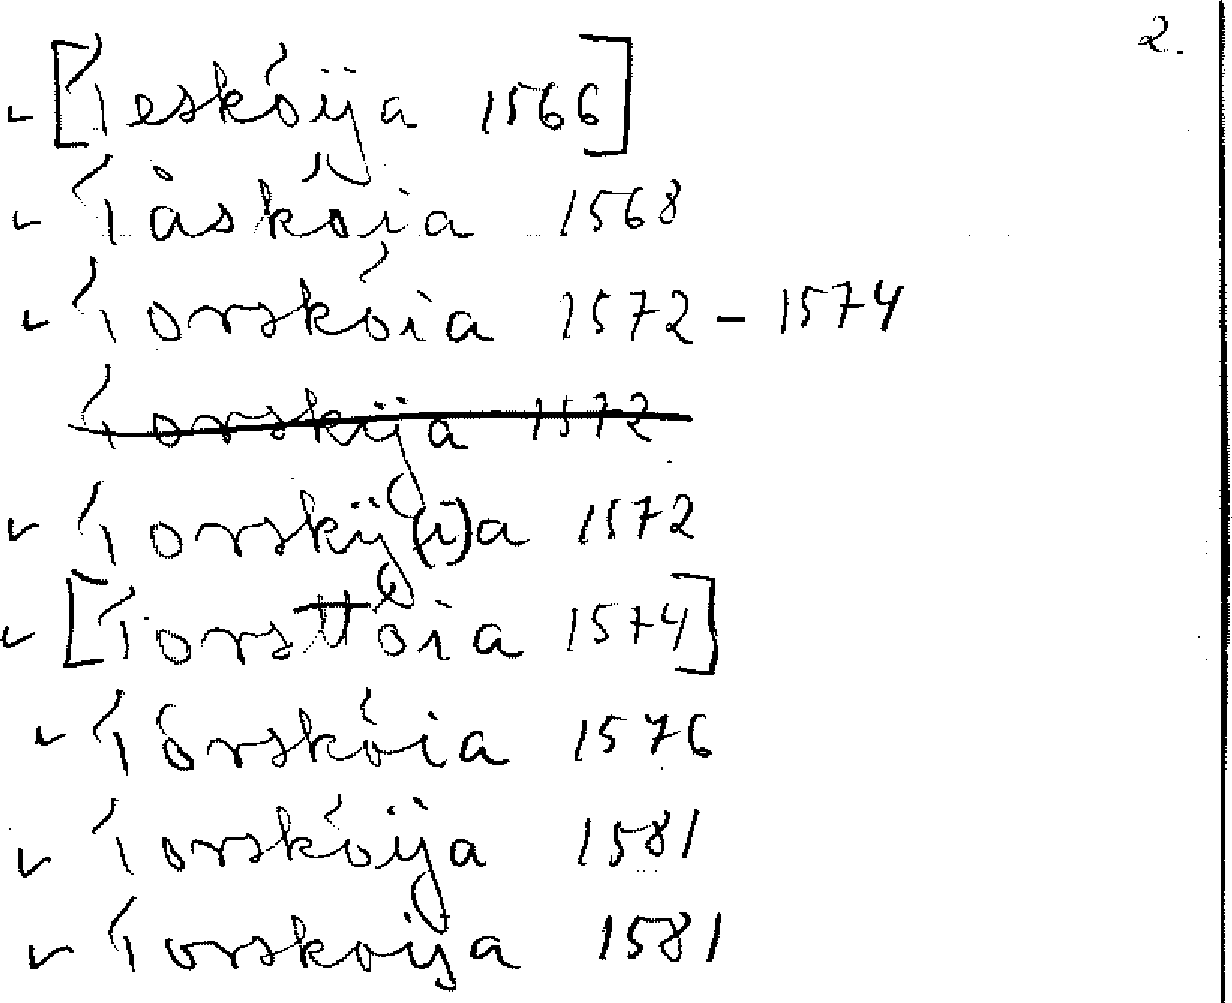 2.
[Teskóija 1566]
Tåskőia 1568
Torskóia 1572 - 1574
Torskija 1572
Torskij(i)a 1572
[Torsttóia 1574]
Tórskóia 1576
Torskóija 1581
Torskoija 1581